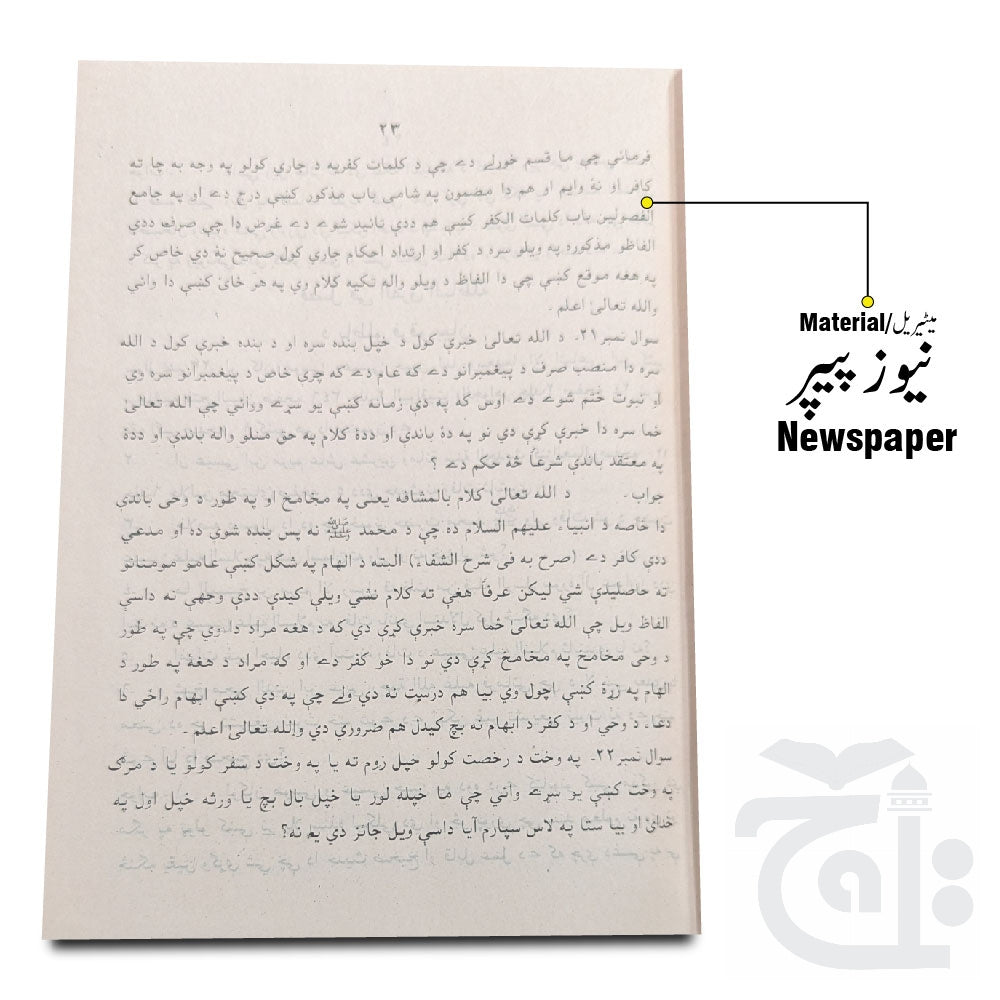 ٢٣
فرمائي چې ما قسم خوړلے دے چې د کلمات کفریه د جاري کولو په وجه به چا ته
کافر او نۀ وایم او هم دا مضمون په شامی باب مذکور کښې درج دے او په جامع
الفصولین باب کلمات الکفر کښې هم ددې تائید شوے دے غرض دا چې صرف ددې
الفاظو مذکوره په ویلو سره د کفر او ارتداد احکام جاري کول صحیح نۀ دي خاص کر
په هغه موقع کښې چې دا الفاظ د ویلو واله تکیه کلام وي په هر ځائ کښې دا وائي
والله تعالیٰ اعلم ۔
سوال نمبر ٢١۔ د الله تعالیٰ خبرې کول د خپل بنده سره او د بنده خبرې کول د الله
سره دا منصب صرف د پیغمبرانو دے که عام دے که چرې خاص د پیغمبرانو سره وي
او نبوت ختم شوے دے اوس که په دې زمانه کښې یو سړے ووائي چې الله تعالیٰ
ځما سره دا خبرې کړې دي نو په دۀ باندې او ددۀ کلام په حق منلو واله باندې او ددۀ
په معتقد باندې شرعاً څۀ حکم دے ؟
جواب ۔ د الله تعالیٰ کلام بالمشافه یعنې په مخامخ او په طور د وحی باندې
دا خاصه د انبیاء علیهم السلام ده چې د محمد ﷺ نه پس بنده شوې ده او مدعي
ددې کافر دے (صرح به فی شرح الشفاء) البته د الهام په شکل کښې عامو مومنانو
ته حاصلیدې شي لیکن عرفاً هغې ته کلام نشي ویلې کیدې ددې وجهې نه داسې
الفاظ ویل چې الله تعالیٰ ځما سره خبرې کړې دي که د هغه مراد دا وي چې په طور
د وحی مخامخ په مخامخ کړې دي نو دا خو کفر دے او که مراد د هغۀ په طور د
الهام په زړۀ کښې اچول وي بیا هم درست نۀ دي ولے چې په دې کښې ابهام راځي دا
دعاء د وحي او د کفر د ابهام نه بچ کیدل هم ضروري دي والله تعالیٰ اعلم ۔
سوال نمبر ٢٢۔ په وخت د رخصت کولو خپل زوم ته یا په وخت د سفر کولو یا د مرګ
په وخت کښې یو سړے وائي چې ما خپله لور یا خپل بال بچ یا ورثه خپل اول په
خدائ او بیا ستا په لاس سپارم آیا داسې ویل جائز دي یم نه؟
Material/میٹیریل
نیوز پیپر
Newspaper
تاج